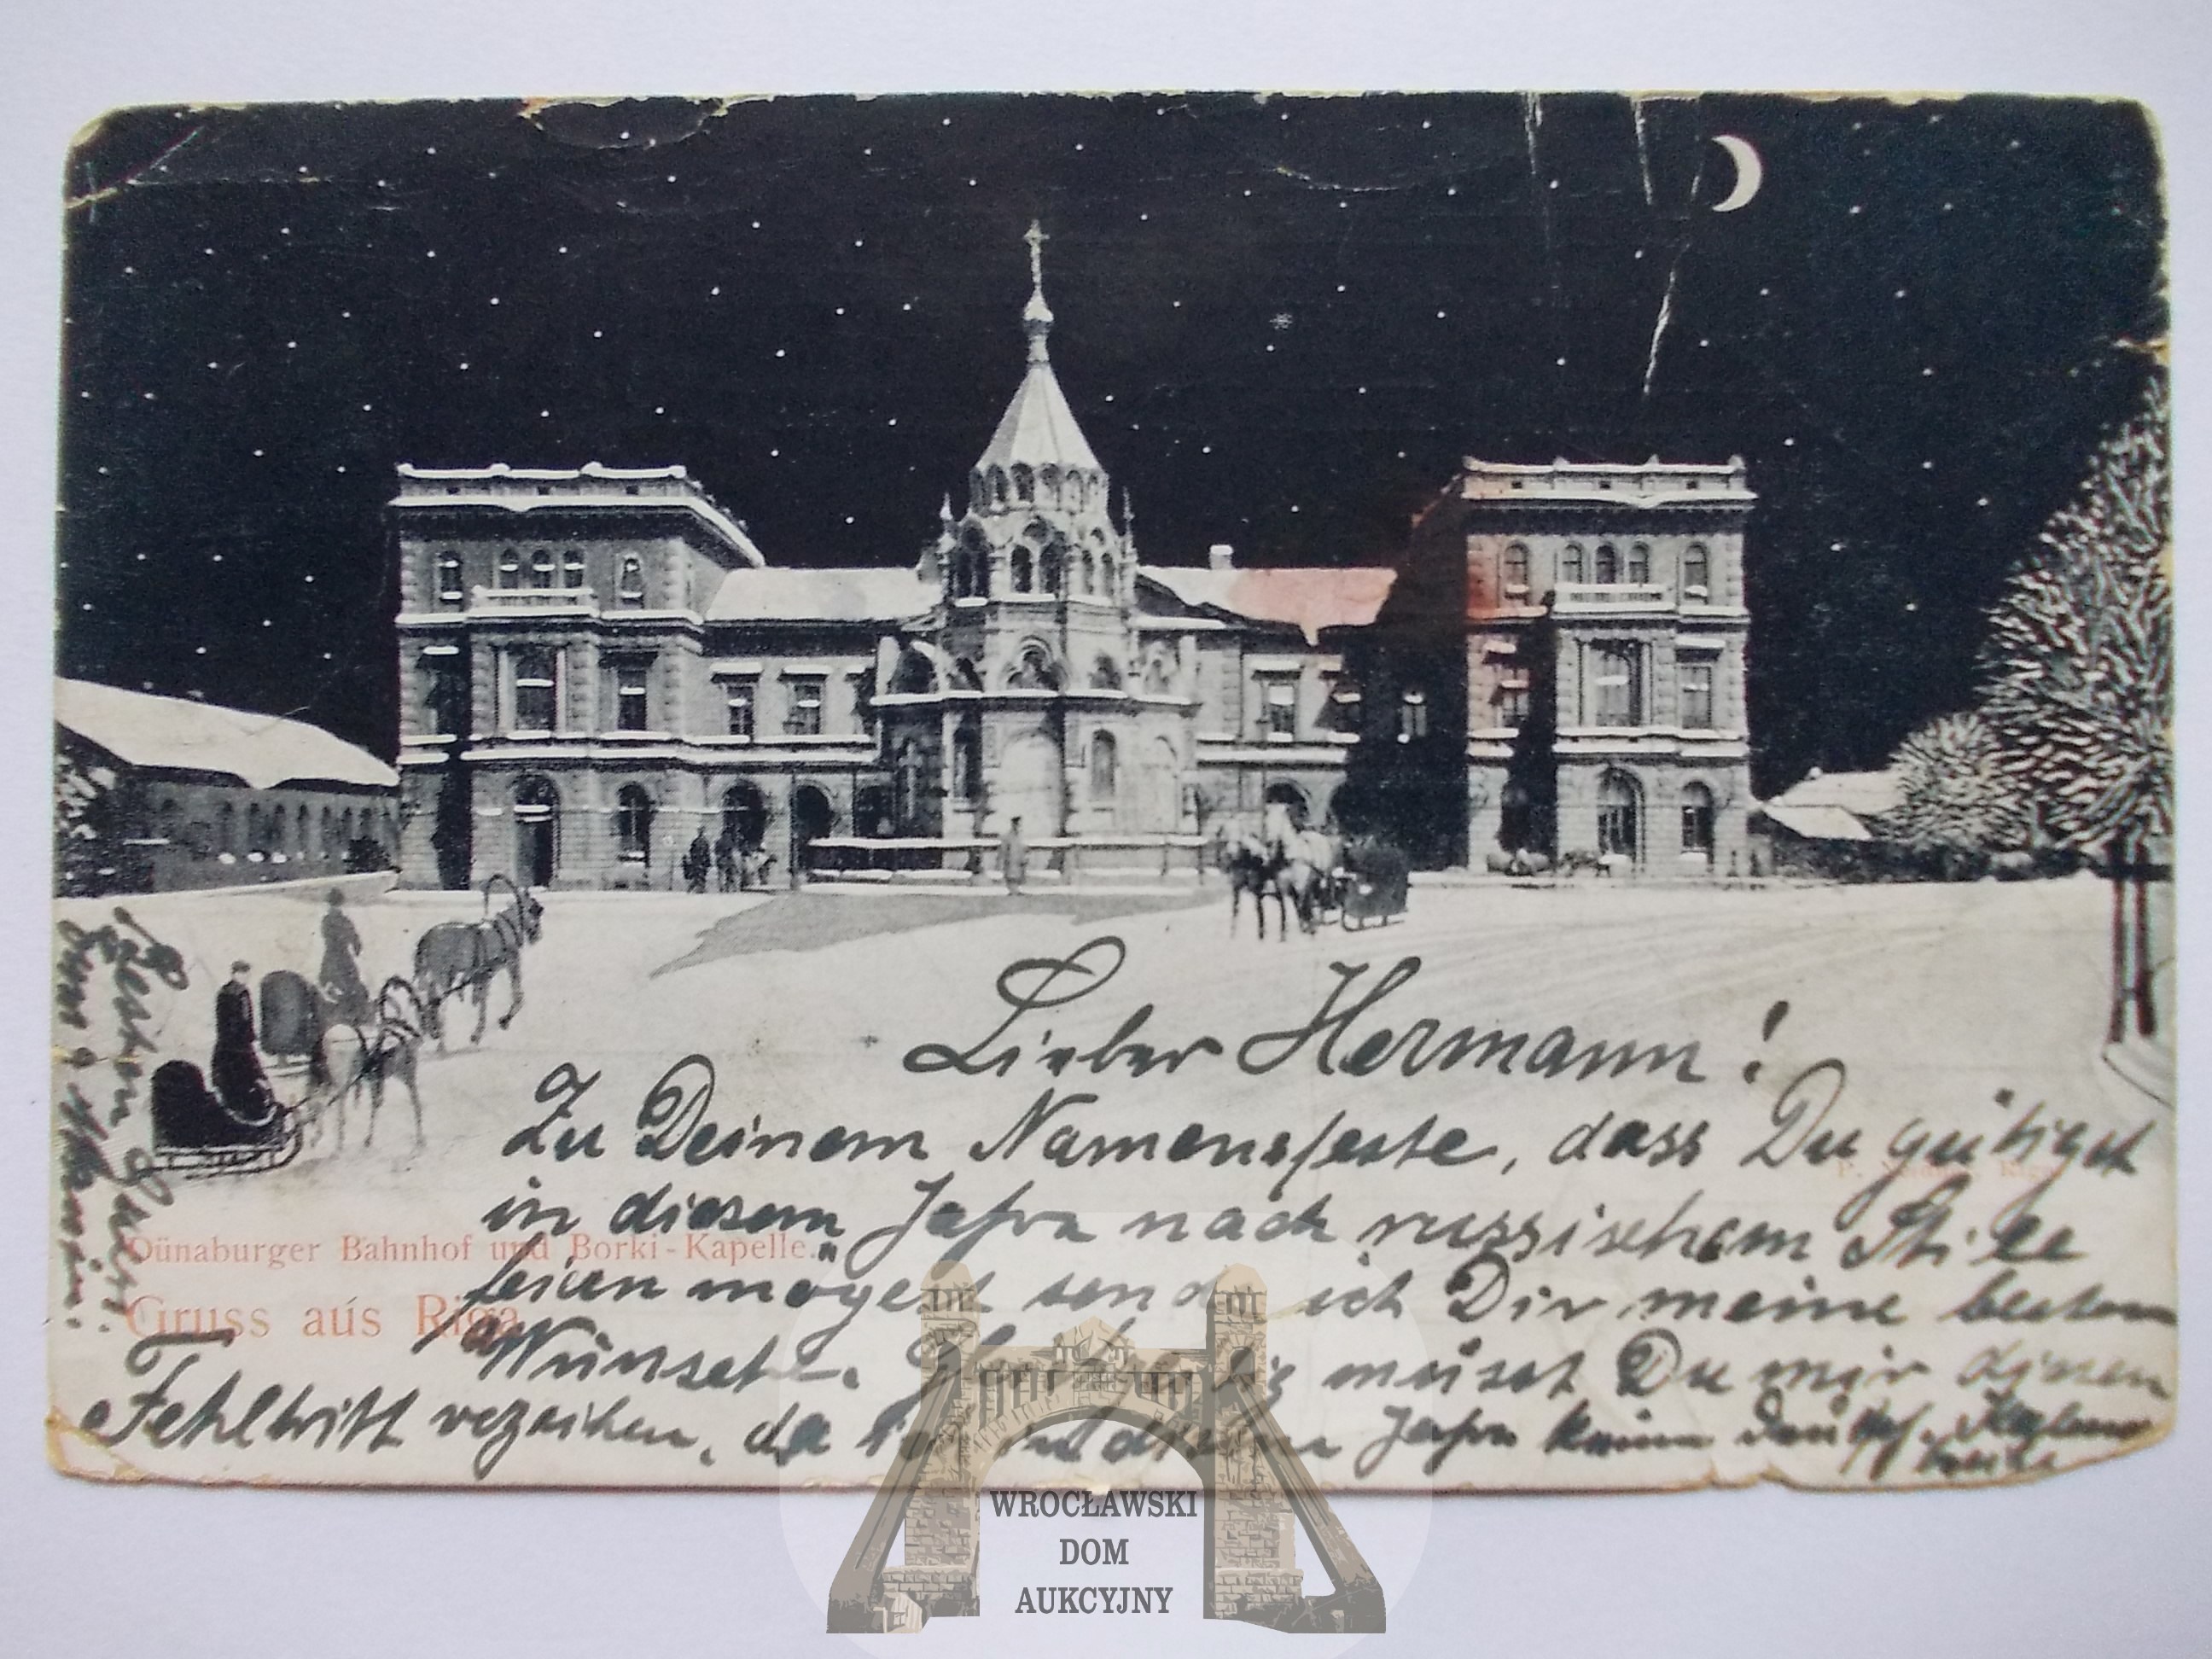 Lieber Hermann!
Zu Deinem Namensfeste, dass Du gütigst
in diesem Jahre nach russischem Stile
feiern mögest sende ich Dir meine besten
Wünsche. musst Du mir diesen
Fehltritt verzeihen, da ich in diesem Jahre keinen
Dünaburger Bahnhof und Borki-Kapelle.
Gruss aus Riga
WROCŁAWSKI
DOM
AUKCYJNY